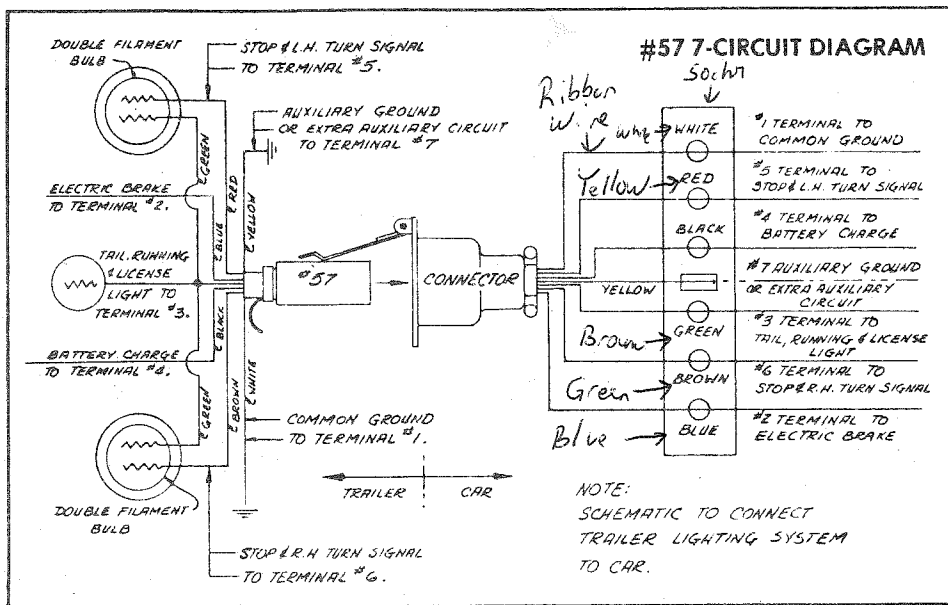 #57 7-CIRCUIT DIAGRAM
DOUBLE FILAMENT
BULB
STOP & L.H. TURN SIGNAL
TO TERMINAL #5.
AUXILIARY GROUND
OR EXTRA AUXILIARY CIRCUIT
TO TERMINAL #7
GREEN
RED
BLUE
YELLOW
ELECTRIC BRAKE
TO TERMINAL #2.
TAIL, RUNNING
& LICENSE
LIGHT TO
TERMINAL #3.
BLACK
BATTERY CHARGE
TO TERMINAL #4.
GREEN
BROWN
WHITE
COMMON GROUND
TO TERMINAL #1.
DOUBLE FILAMENT
BULB
STOP & R.H. TURN SIGNAL
TO TERMINAL #6.
#57
CONNECTOR
TRAILER
CAR
Ribbon
Wire
White
Yellow
YELLOW
Brown
Green
Blue
WHITE
RED
BLACK
GREEN
BROWN
BLUE
#1 TERMINAL TO
COMMON GROUND
#5 TERMINAL TO
STOP & L.H. TURN SIGNAL
#4 TERMINAL TO
BATTERY CHARGE
#7 AUXILIARY GROUND
OR EXTRA AUXILIARY
CIRCUIT
#3 TERMINAL TO
TAIL, RUNNING & LICENSE
LIGHT
#6 TERMINAL TO
STOP & R.H. TURN SIGNAL
#2 TERMINAL TO
ELECTRIC BRAKE
NOTE:
SCHEMATIC TO CONNECT
TRAILER LIGHTING SYSTEM
TO CAR.